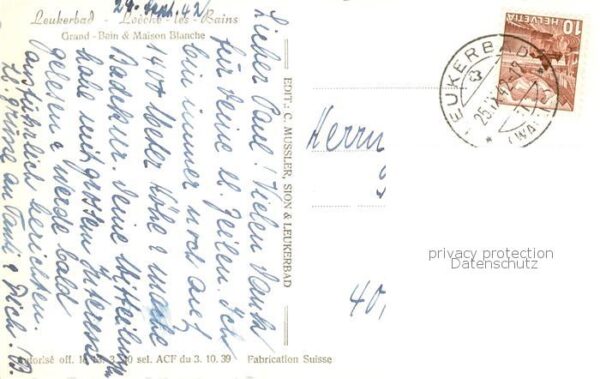 24. Sept. 42
Leukerbad - Loèche-les-Bains
Grand-Bain & Maison Blanche
Lieber Paul! Vielen Dank
für Deine lb. Zeilen. Ich
bin immer noch auf
1400 Meter Höhe & mache
Badekur. Deine Mitteilungen
habe mit grossem Interesse
gelesen & werde bald
ausführlich berichten.
Lb. Grüsse an Tanti & Dich!
EDIT.: C. MUSSLER, SION & LEUKERBAD
Autorisé off. le 3. 10 sel. ACF du 3. 10. 39 Fabrication Suisse
Herrn
40,
HELVETIA
10
LEUKERBAD
25.IX.42
privacy protection
Datenschutz